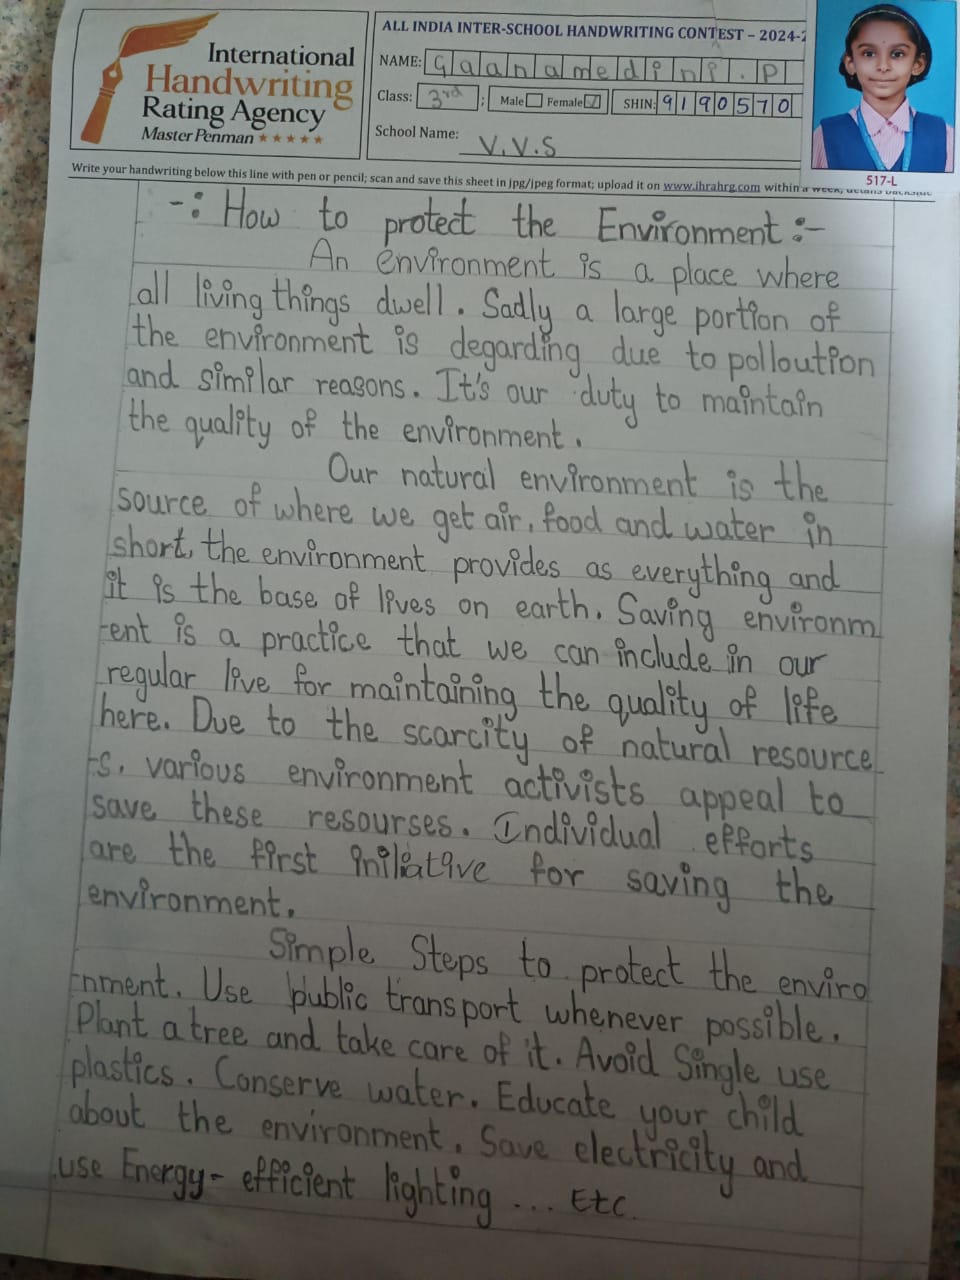 International
Handwriting
Rating Agency
Master Penman ★★★★★
ALL INDIA INTER-SCHOOL HANDWRITING CONTEST – 2024-2
NAME: Gaanamedini.P
Class: 3rd ; Male Female SHIN: 9190570
School Name: V.V.S
517-L
Write your handwriting below this line with pen or pencil; scan and save this sheet in jpg/jpeg format; upload it on www.ihrahrg.com within a week; details backside
-: How to protect the Environment :-
An environment is a place where
all living things dwell. Sadly a large portion of
the environment is degarding due to polloution
and similar reasons. It's our duty to maintain
the quality of the environment.
Our natural environment is the
source of where we get air, food and water in
short, the environment provides as everything and
it is the base of lives on earth. Saving environm
-ent is a practice that we can include in our
regular live for maintaining the quality of life
here. Due to the scarcity of natural resource
-s. various environment activists appeal to
save these resourses. Individual efforts
are the first initiative for saving the
environment.
Simple Steps to protect the enviro
-nment. Use public transport whenever possible.
Plant a tree and take care of it. Avoid Single use
plastics. Conserve water. Educate your child
about the environment. Save electricity and
use Energy- efficient lighting ... Etc.